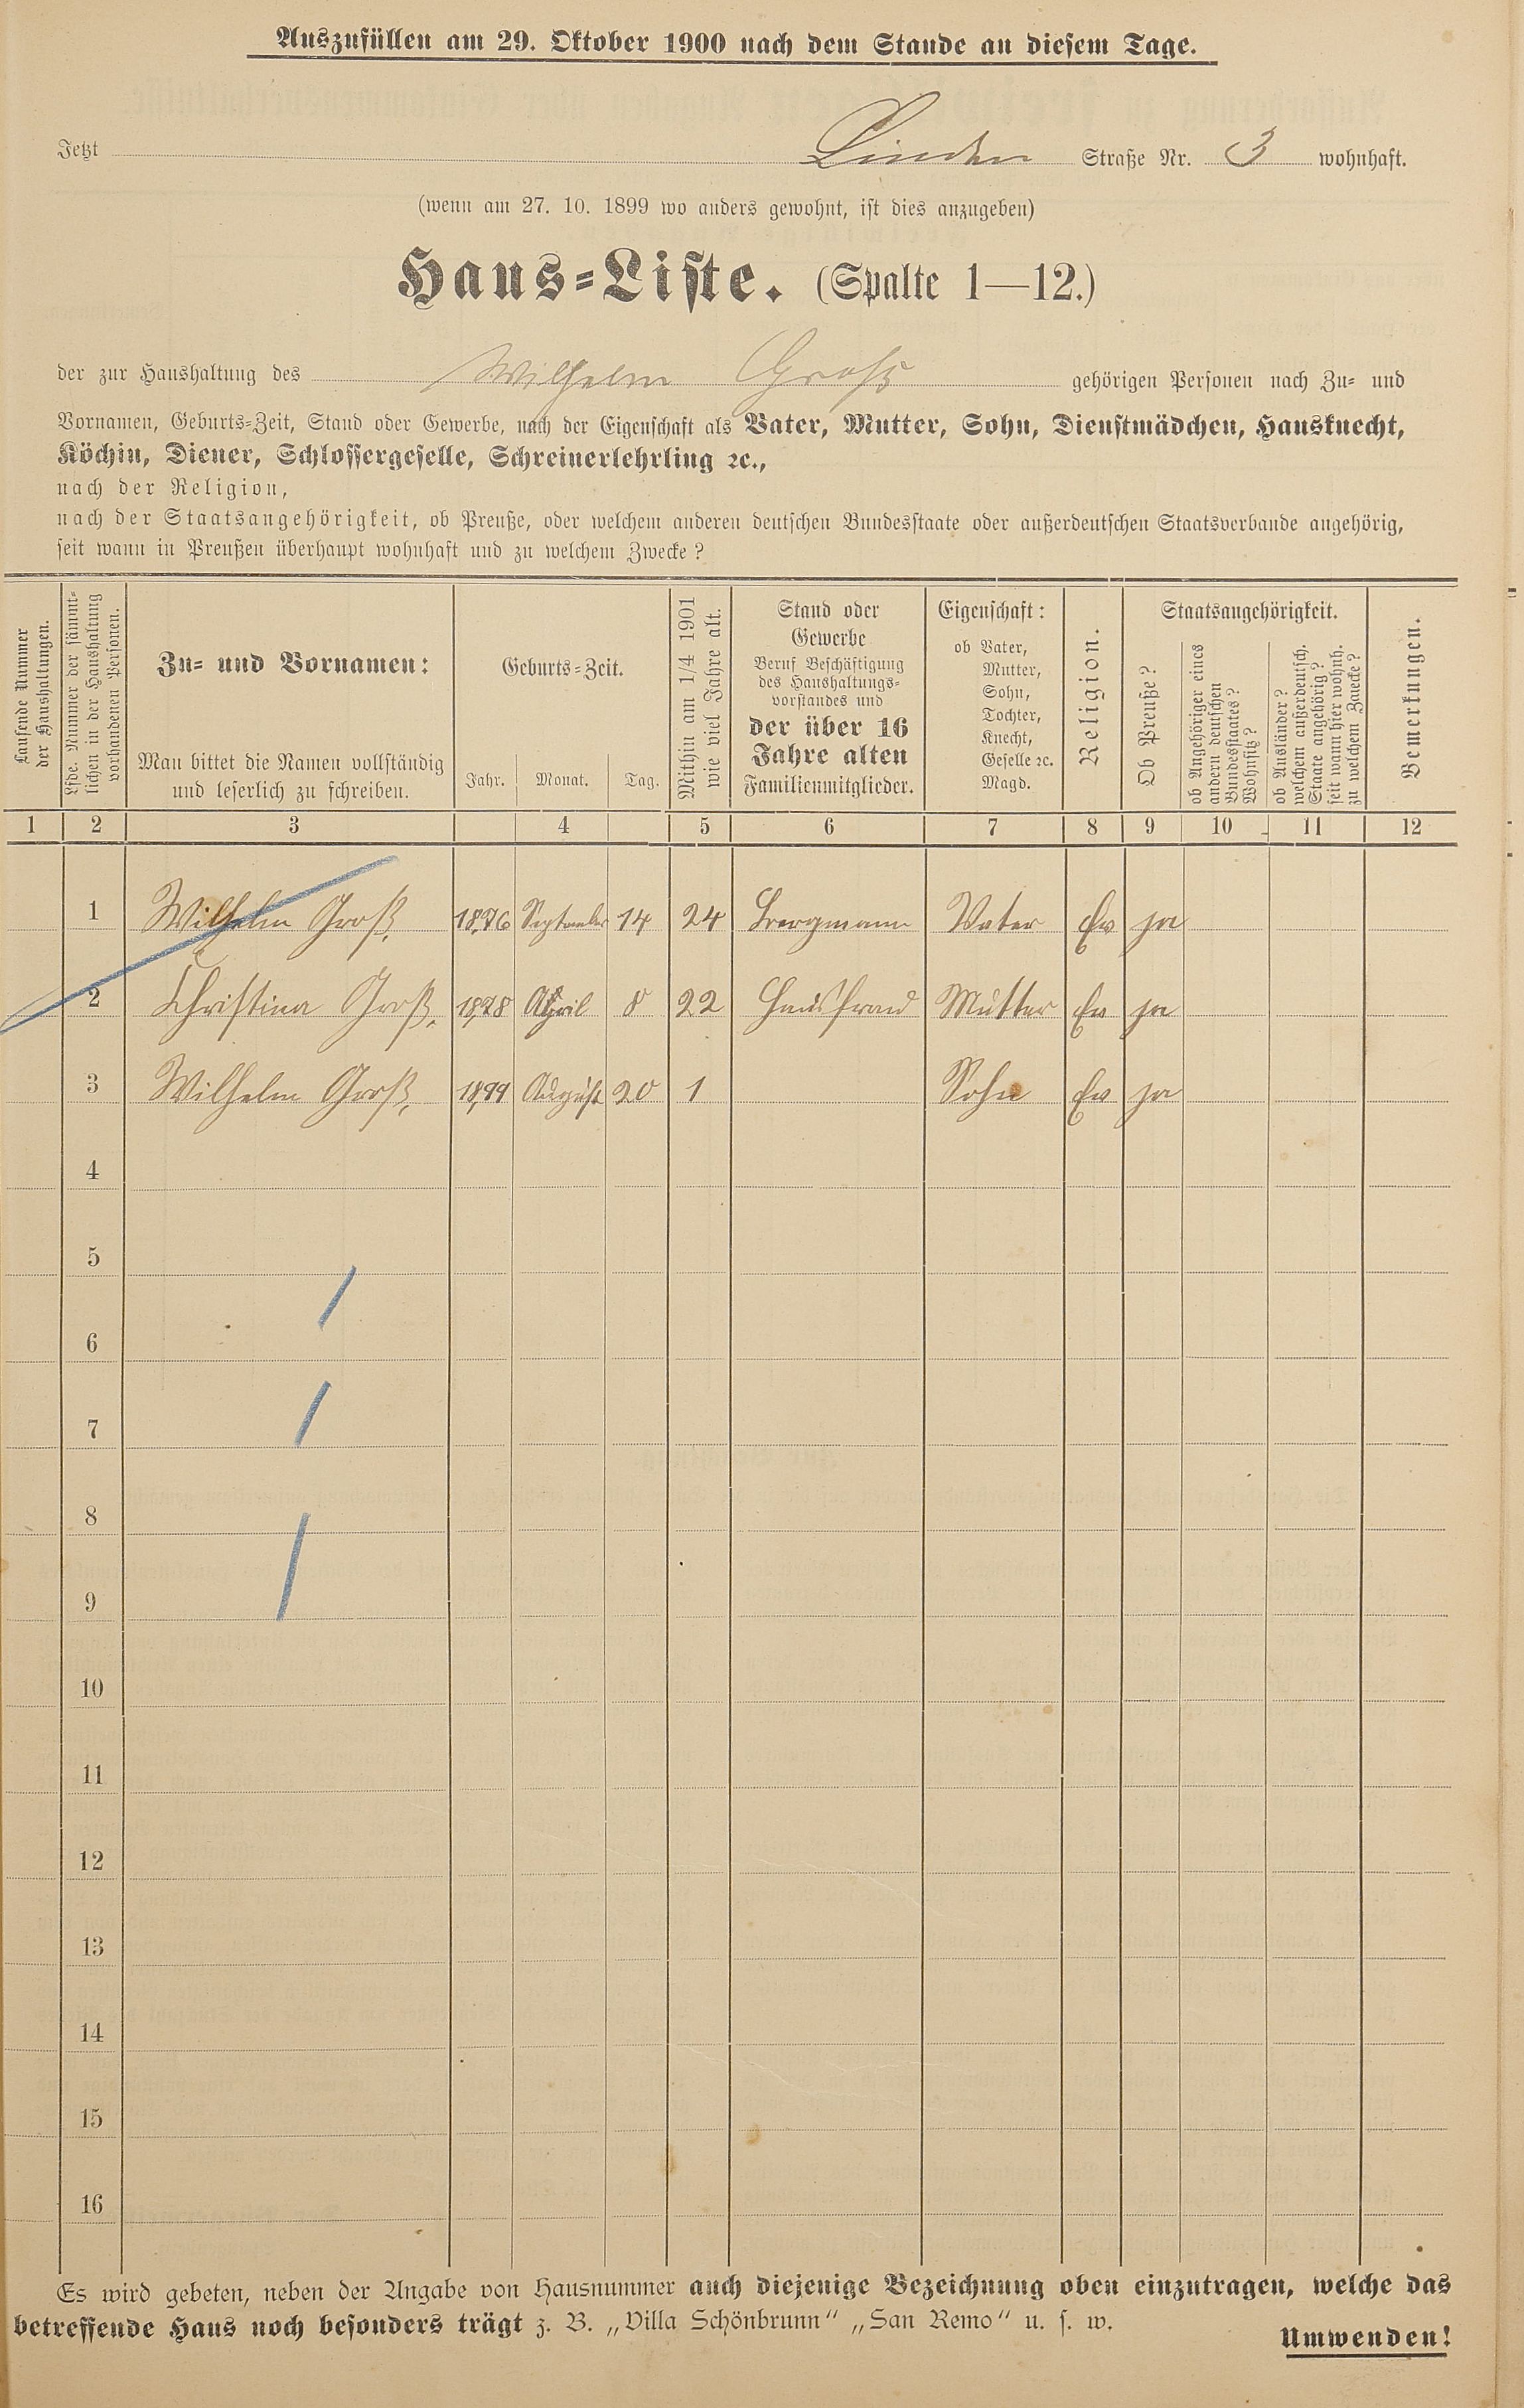 Auszufüllen am 29. Oktober 1900 nach dem Stande an diesem Tage.
Jetzt Linden Straße Nr. 3 wohnhaft.
(wenn am 27. 10. 1899 wo anders gewohnt, ist dies anzugeben)
Haus-Liste. (Spalte 1—12.)
der zur Haushaltung des Wilhelm Groß gehörigen Personen nach Zu- und
Vornamen, Geburts-Zeit, Stand oder Gewerbe, nach der Eigenschaft als Vater, Mutter, Sohn, Dienstmädchen, Hausknecht,
Köchin, Diener, Schlossergeselle, Schreinerlehrling ꝛc.,
nach der Religion,
nach der Staatsangehörigkeit, ob Preuße, oder welchem anderen deutschen Bundesstaate oder außerdeutschen Staatsverbande angehörig,
seit wann in Preußen überhaupt wohnhaft und zu welchem Zwecke?
Laufende Nummer
der Haushaltungen.
Lfde. Nummer der sämmt-
lichen in der Haushaltung
vorhandenen Personen.
Zu- und Vornamen:
Man bittet die Namen vollständig
und leserlich zu schreiben.
Geburts-Zeit.
Jahr. Monat. Tag.
Mithin am 1/4 1901
wie viel Jahre alt.
Stand oder
Gewerbe
Beruf Beschäftigung
des Haushaltungs-
vorstandes und
der über 16
Jahre alten
Familienmitglieder.
Eigenschaft:
ob Vater,
Mutter,
Sohn,
Tochter,
Knecht,
Geselle ꝛc.
Magd.
Religion.
Staatsangehörigkeit.
Ob Preuße?
ob Angehöriger eines
andern deutschen
Bundesstaates?
Wohnsitz?
ob Ausländer?
welchem außerdeutsch.
Staate angehörig?
seit wann hier wohnh.
zu welchem Zwecke?
Bemerkungen.
1 2 3 4 5 6 7 8 9 10 11 12
1 Wilhelm Groß, 1876 September 14 24 Bergmann Vater Ev ja
2 Christina Groß, 1878 April 8 22 Hausfrau Mutter Ev ja
3 Wilhelm Groß, 1899 August 20 1 Sohn Ev ja
4
5
6
7
8
9
10
11
12
13
14
15
16
Es wird gebeten, neben der Angabe von Hausnummer auch diejenige Bezeichnung oben einzutragen, welche das
betreffende Haus noch besonders trägt z. B. „Villa Schönbrunn“ „San Remo“ u. s. w.
Umwenden!